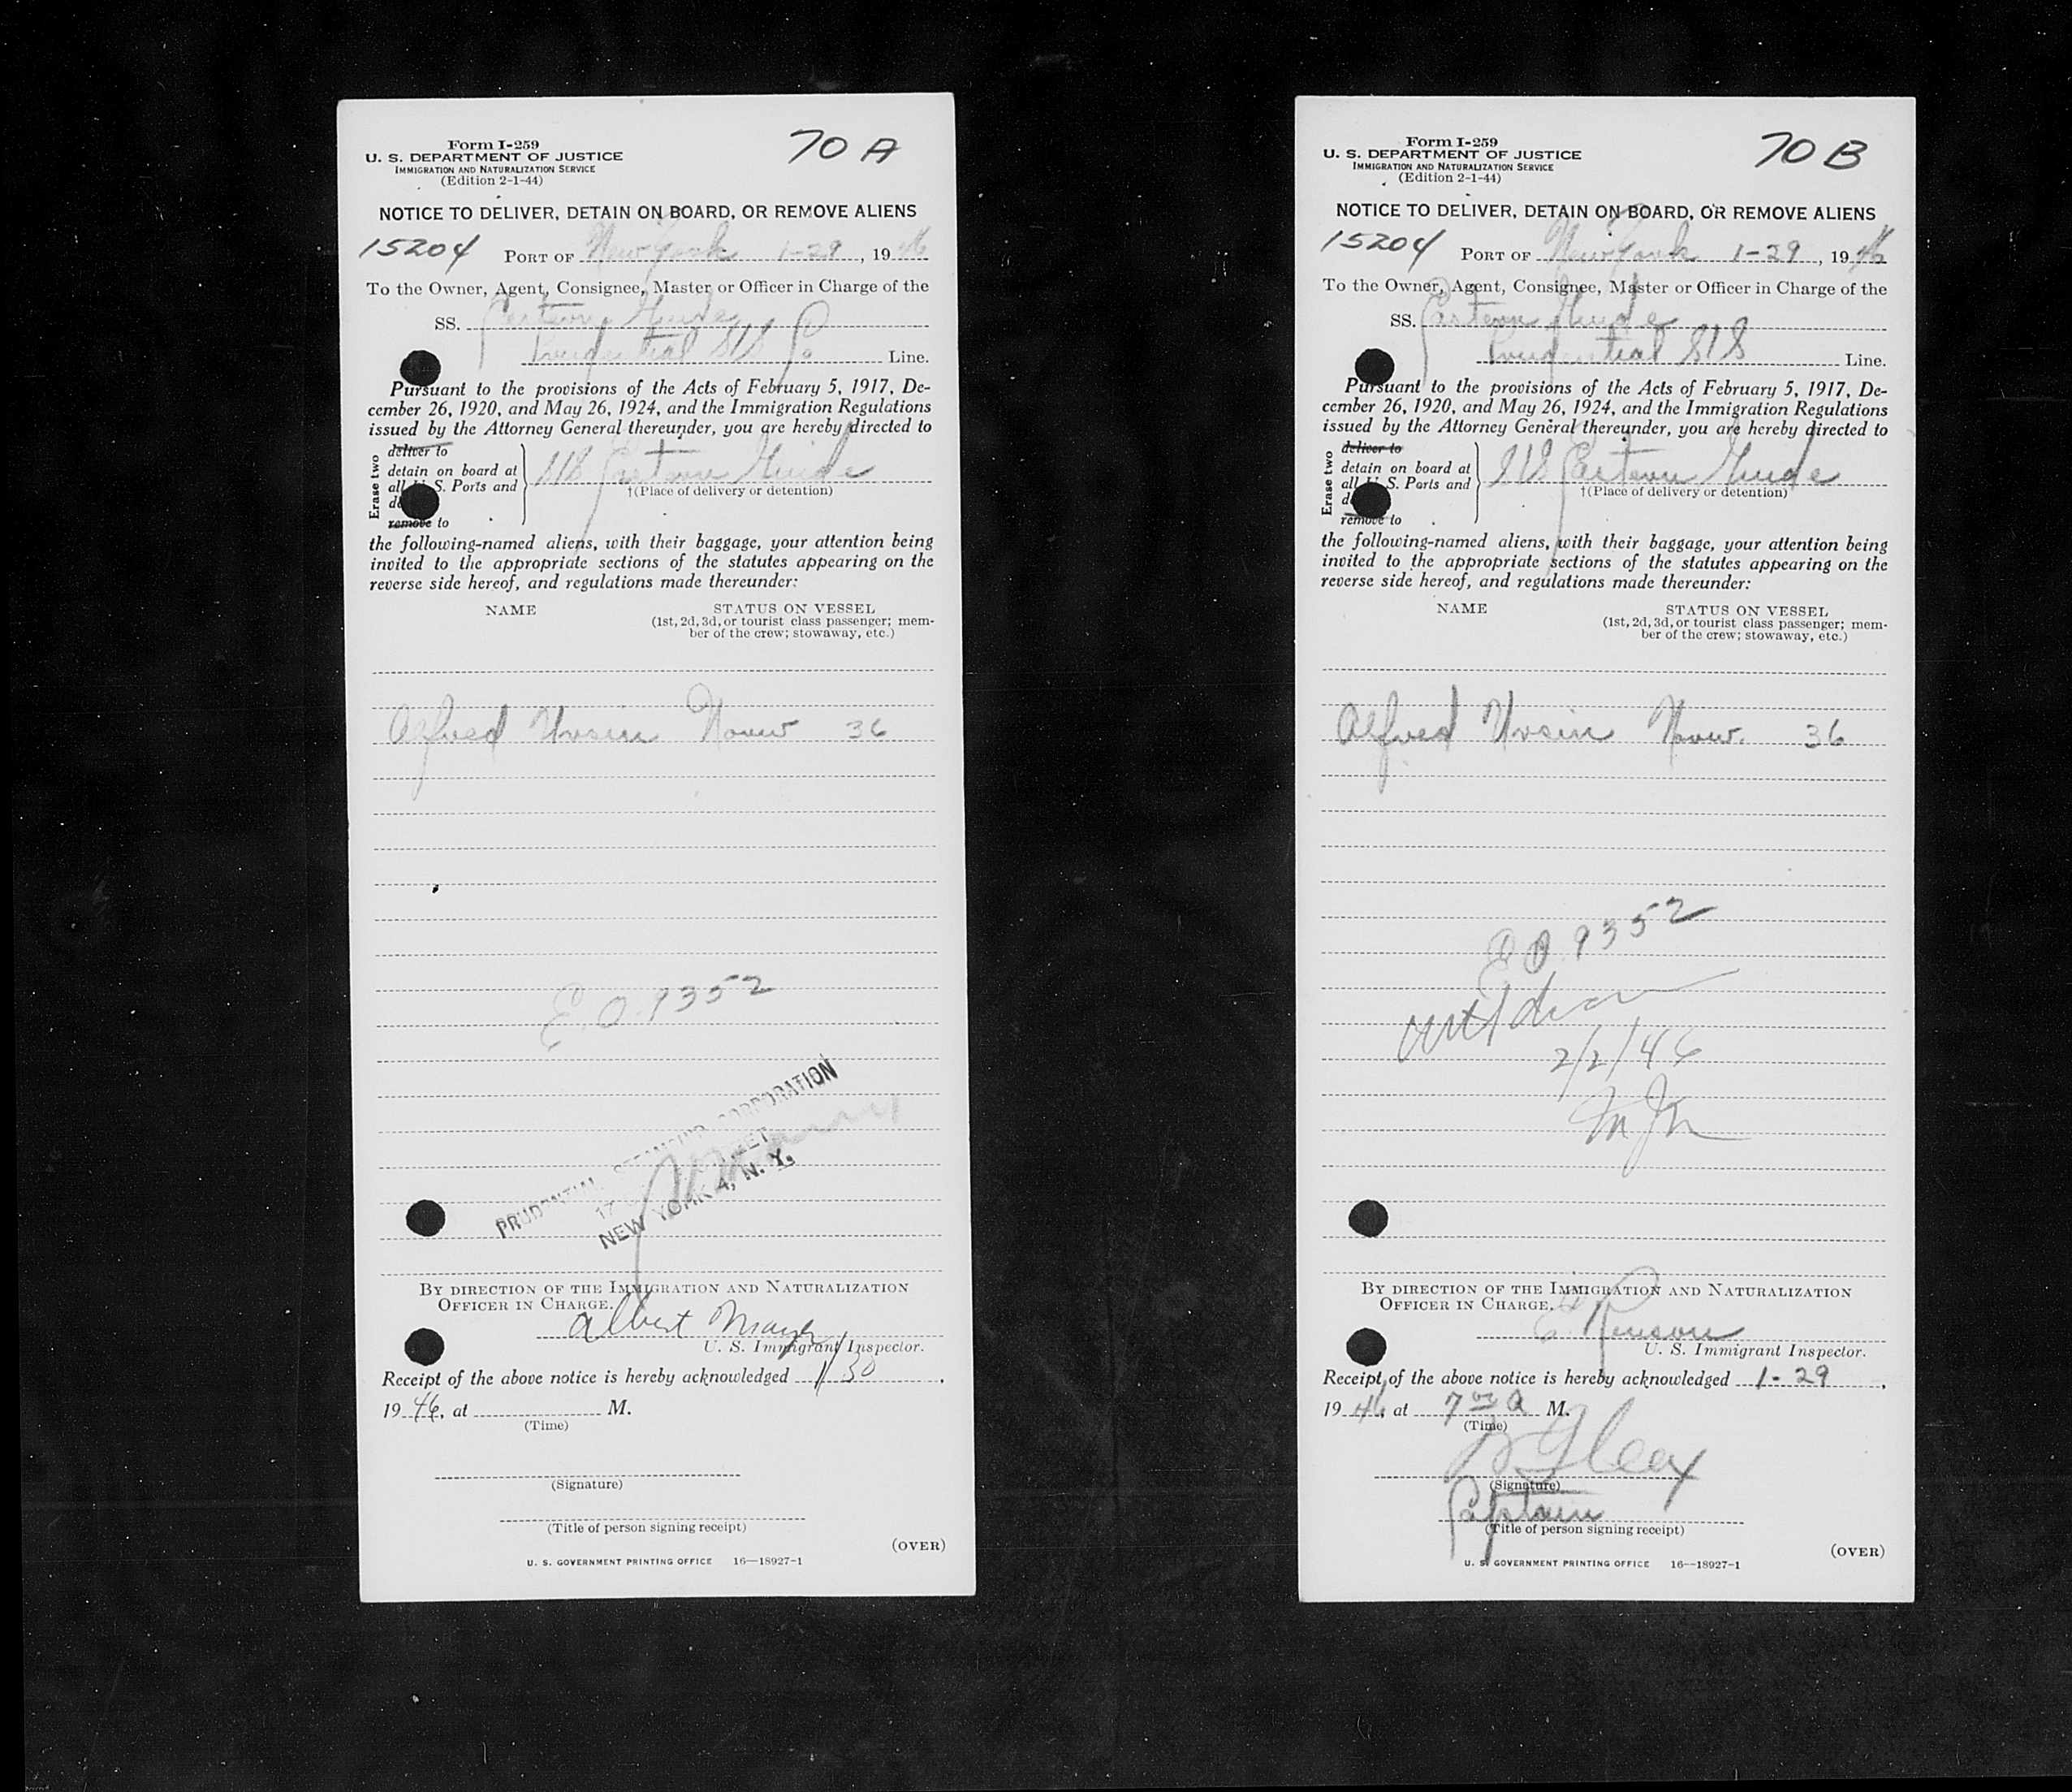 Form I-259
U. S. DEPARTMENT OF JUSTICE
IMMIGRATION AND NATURALIZATION SERVICE
(Edition 2-1-44)
70 A
NOTICE TO DELIVER, DETAIN ON BOARD, OR REMOVE ALIENS
15204 PORT OF New York 1-29, 1946
To the Owner, Agent, Consignee, Master or Officer in Charge of the
SS. Eastern Guide
Prudential S/S Co Line.
Pursuant to the provisions of the Acts of February 5, 1917, De-
cember 26, 1920, and May 26, 1924, and the Immigration Regulations
issued by the Attorney General thereunder, you are hereby directed to
Erase two
deliver to
detain on board at
all U. S. Ports and
remove to
S/S Eastern Guide
†(Place of delivery or detention)
the following-named aliens, with their baggage, your attention being
invited to the appropriate sections of the statutes appearing on the
reverse side hereof, and regulations made thereunder:
NAME STATUS ON VESSEL
(1st, 2d, 3d, or tourist class passenger; mem-
ber of the crew; stowaway, etc.)
Alfred 36
E.O. 9352
PRUDENTIAL STEAMSHIP CORPORATION
17
NEW YORK 4, N. Y.
BY DIRECTION OF THE IMMIGRATION AND NATURALIZATION
OFFICER IN CHARGE.
Albert Mayer
U. S. Immigrant Inspector.
Receipt of the above notice is hereby acknowledged 1/30,
1946, at M.
(Time)
(Signature)
(Title of person signing receipt)
(OVER)
U. S. GOVERNMENT PRINTING OFFICE 16—18927-1
Form I-259
U. S. DEPARTMENT OF JUSTICE
IMMIGRATION AND NATURALIZATION SERVICE
(Edition 2-1-44)
70 B
NOTICE TO DELIVER, DETAIN ON BOARD, OR REMOVE ALIENS
15204 PORT OF New York 1-29, 1946
To the Owner, Agent, Consignee, Master or Officer in Charge of the
SS. Eastern Guide
Prudential S/S Line.
Pursuant to the provisions of the Acts of February 5, 1917, De-
cember 26, 1920, and May 26, 1924, and the Immigration Regulations
issued by the Attorney General thereunder, you are hereby directed to
Erase two
deliver to
detain on board at
all U. S. Ports and
remove to
S/S Eastern Guide
†(Place of delivery or detention)
the following-named aliens, with their baggage, your attention being
invited to the appropriate sections of the statutes appearing on the
reverse side hereof, and regulations made thereunder:
NAME STATUS ON VESSEL
(1st, 2d, 3d, or tourist class passenger; mem-
ber of the crew; stowaway, etc.)
Alfred 36
E.O. 9352
2/2/46
BY DIRECTION OF THE IMMIGRATION AND NATURALIZATION
OFFICER IN CHARGE.
U. S. Immigrant Inspector.
Receipt of the above notice is hereby acknowledged 1-29,
1946, at 7 00 A M.
(Time)
(Signature)
Captain
(Title of person signing receipt)
(OVER)
U. S. GOVERNMENT PRINTING OFFICE 16—18927-1